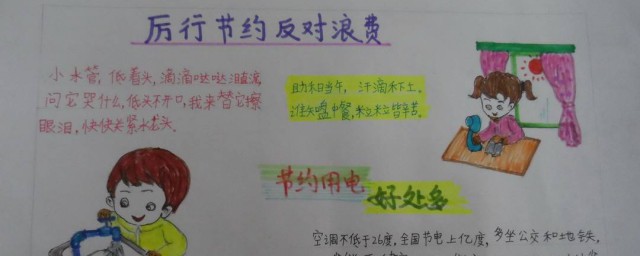 厉行节约反对浪费
小水管,低着头,滴滴哒哒泪直流
问它哭什么,低头不开口,我来替它擦
眼泪,快快关紧水龙头.
锄禾日当午,汗滴禾下土,
谁知盘中餐,粒粒皆辛苦.
节约用电 好处多
空调不低于26度,全国节电上亿度,多坐公交和地铁,